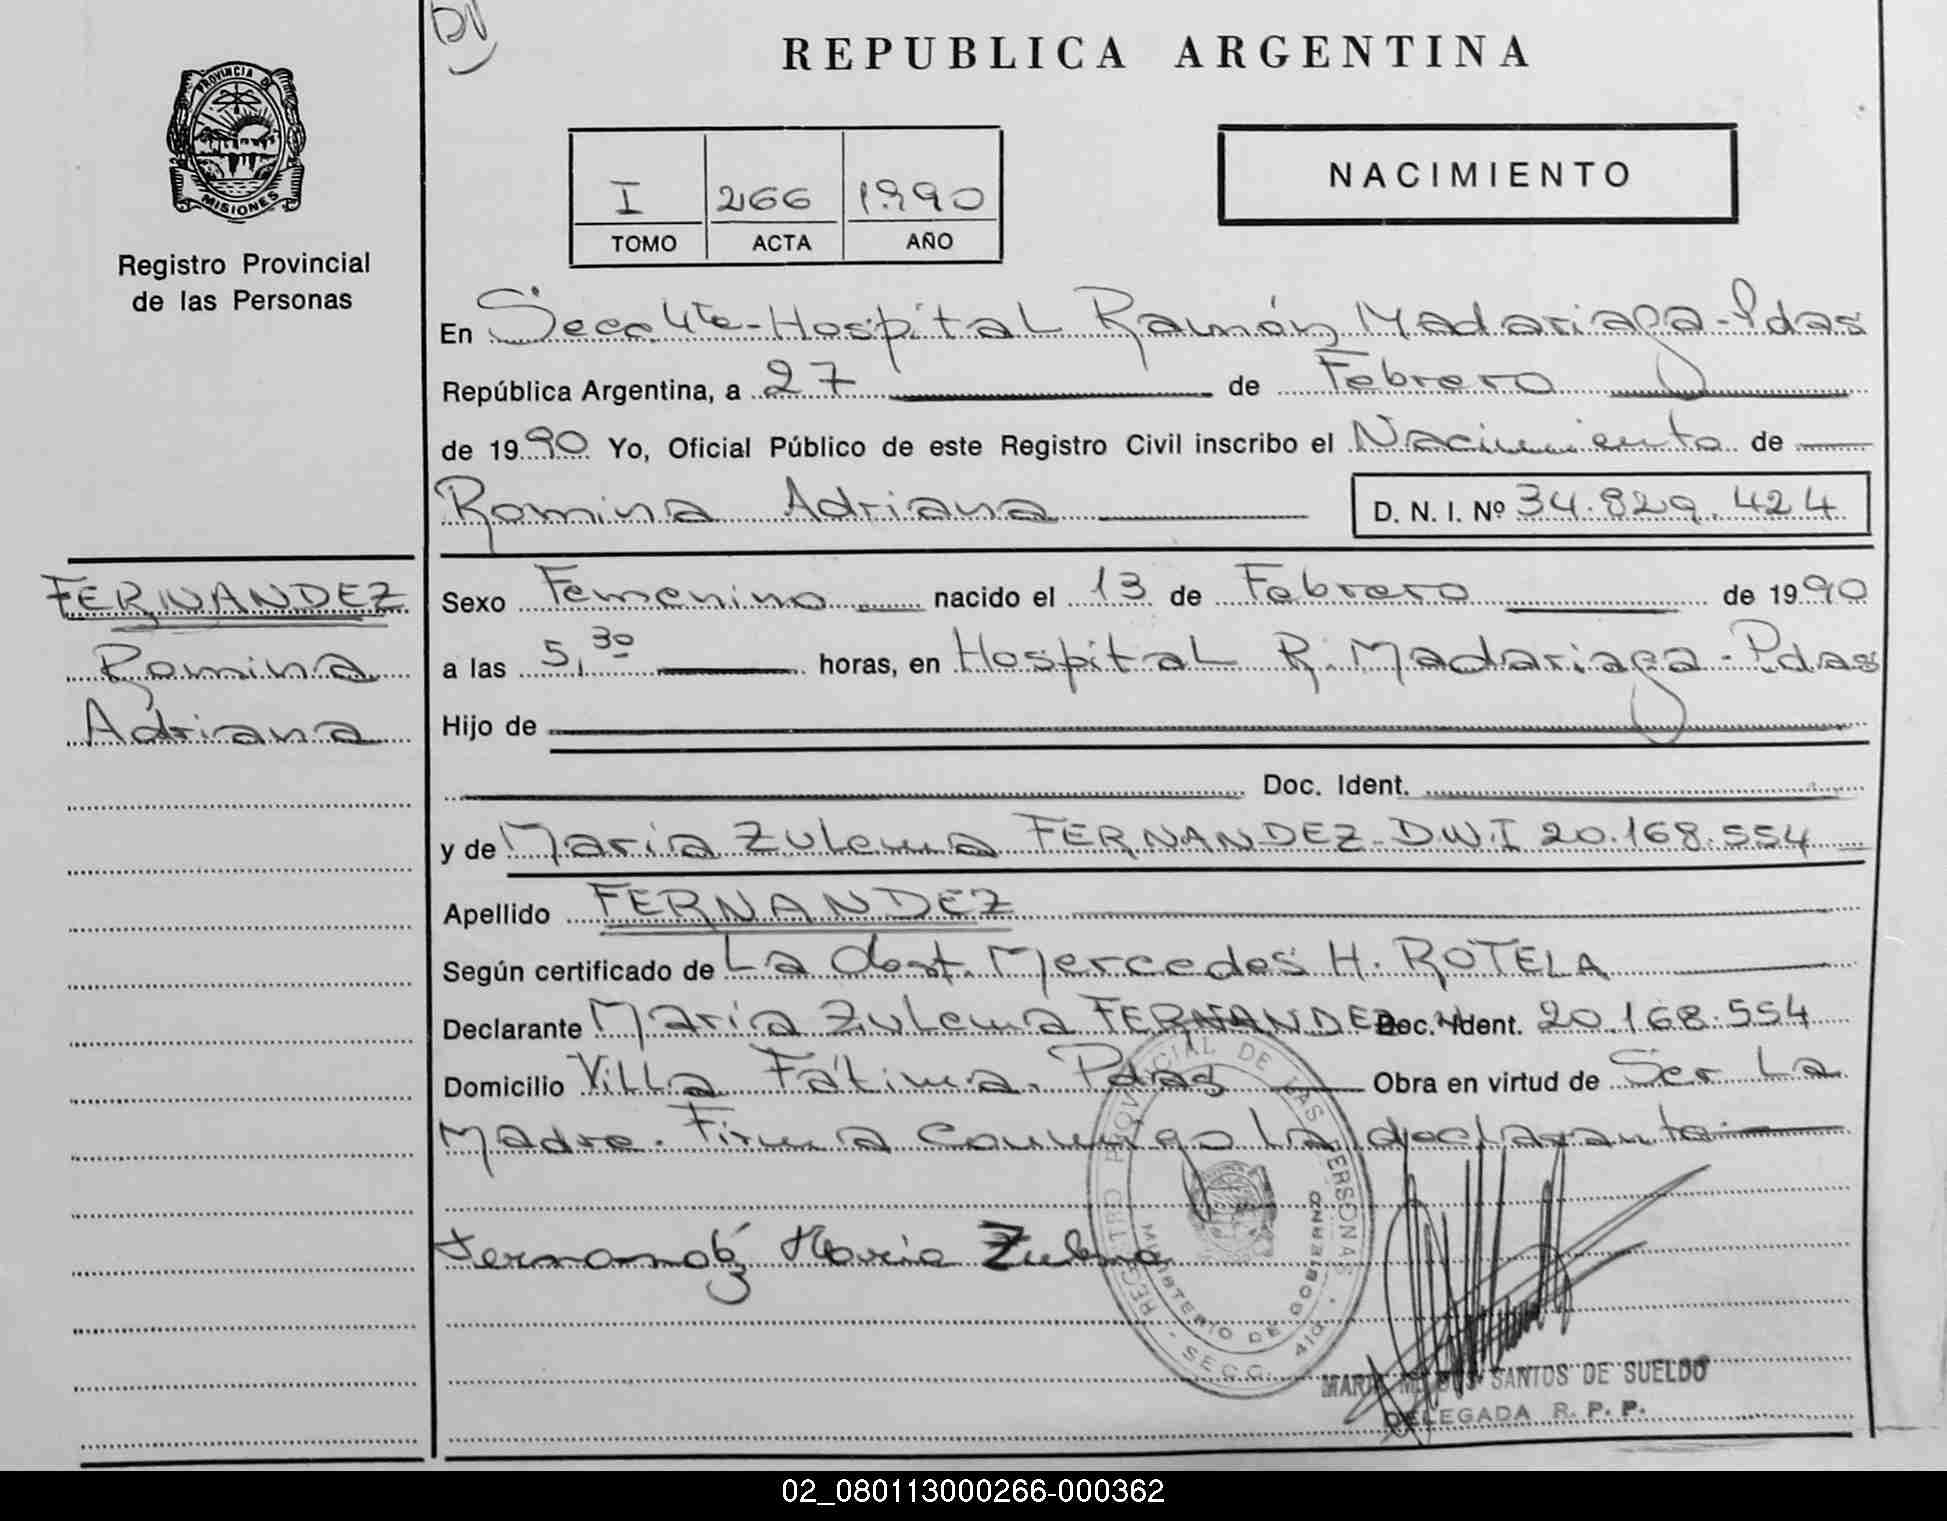 DN
REPUBLICA ARGENTINA
PROVINCIA DE
MISIONES
Registro Provincial
de las Personas
I 266 1990
TOMO ACTA AÑO
NACIMIENTO
En Secc 4te-Hospital Ramón Madariaga-Pdas
República Argentina, a 27 de Febrero
de 1990 Yo, Oficial Público de este Registro Civil inscribo el Nacimiento de
Romina Adriana D. N. I. Nº 34.829.424
FERNANDEZ
Romina
Adriana
Sexo Femenino nacido el 13 de Febrero de 1990
a las 5,30 horas, en Hospital R. Madariaga-Pdas
Hijo de
Doc. Ident.
y de Maria Zulema FERNANDEZ-D.N.I 20.168.554
Apellido FERNANDEZ
Según certificado de La Obst. Mercedes H. ROTELA
Declarante Maria Zulema FERNANDEZ Doc. Ident. 20.168.554
Domicilio Villa Fátima. Pdas Obra en virtud de Ser La
Madre. Firma conmigo la declarante
Fernandez Maria Zulema
REGISTRO PROVINCIAL DE LAS PERSONAS
MINISTERIO DE GOBIERNO
SECC. 410
SANTOS DE SUELDO
DELEGADA R. P. P.
02_080113000266-000362